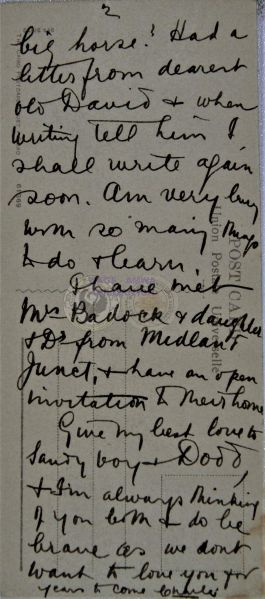 2
big horse! Had a
letter from dearest
old David & when
writing tell him I
shall write again
soon. Am very busy
with so many things
to do & learn.
I have met
Mrs Badock & daughter
& Dr from Midland
Junct, & have an open
invitation to their home
Give my best love to
Sandy boy & Dodd,
& I'm always thinking
of you both & do be
brave as we dont
want to love you for
years to come Charles
POST CARD
Union Postale Universelle